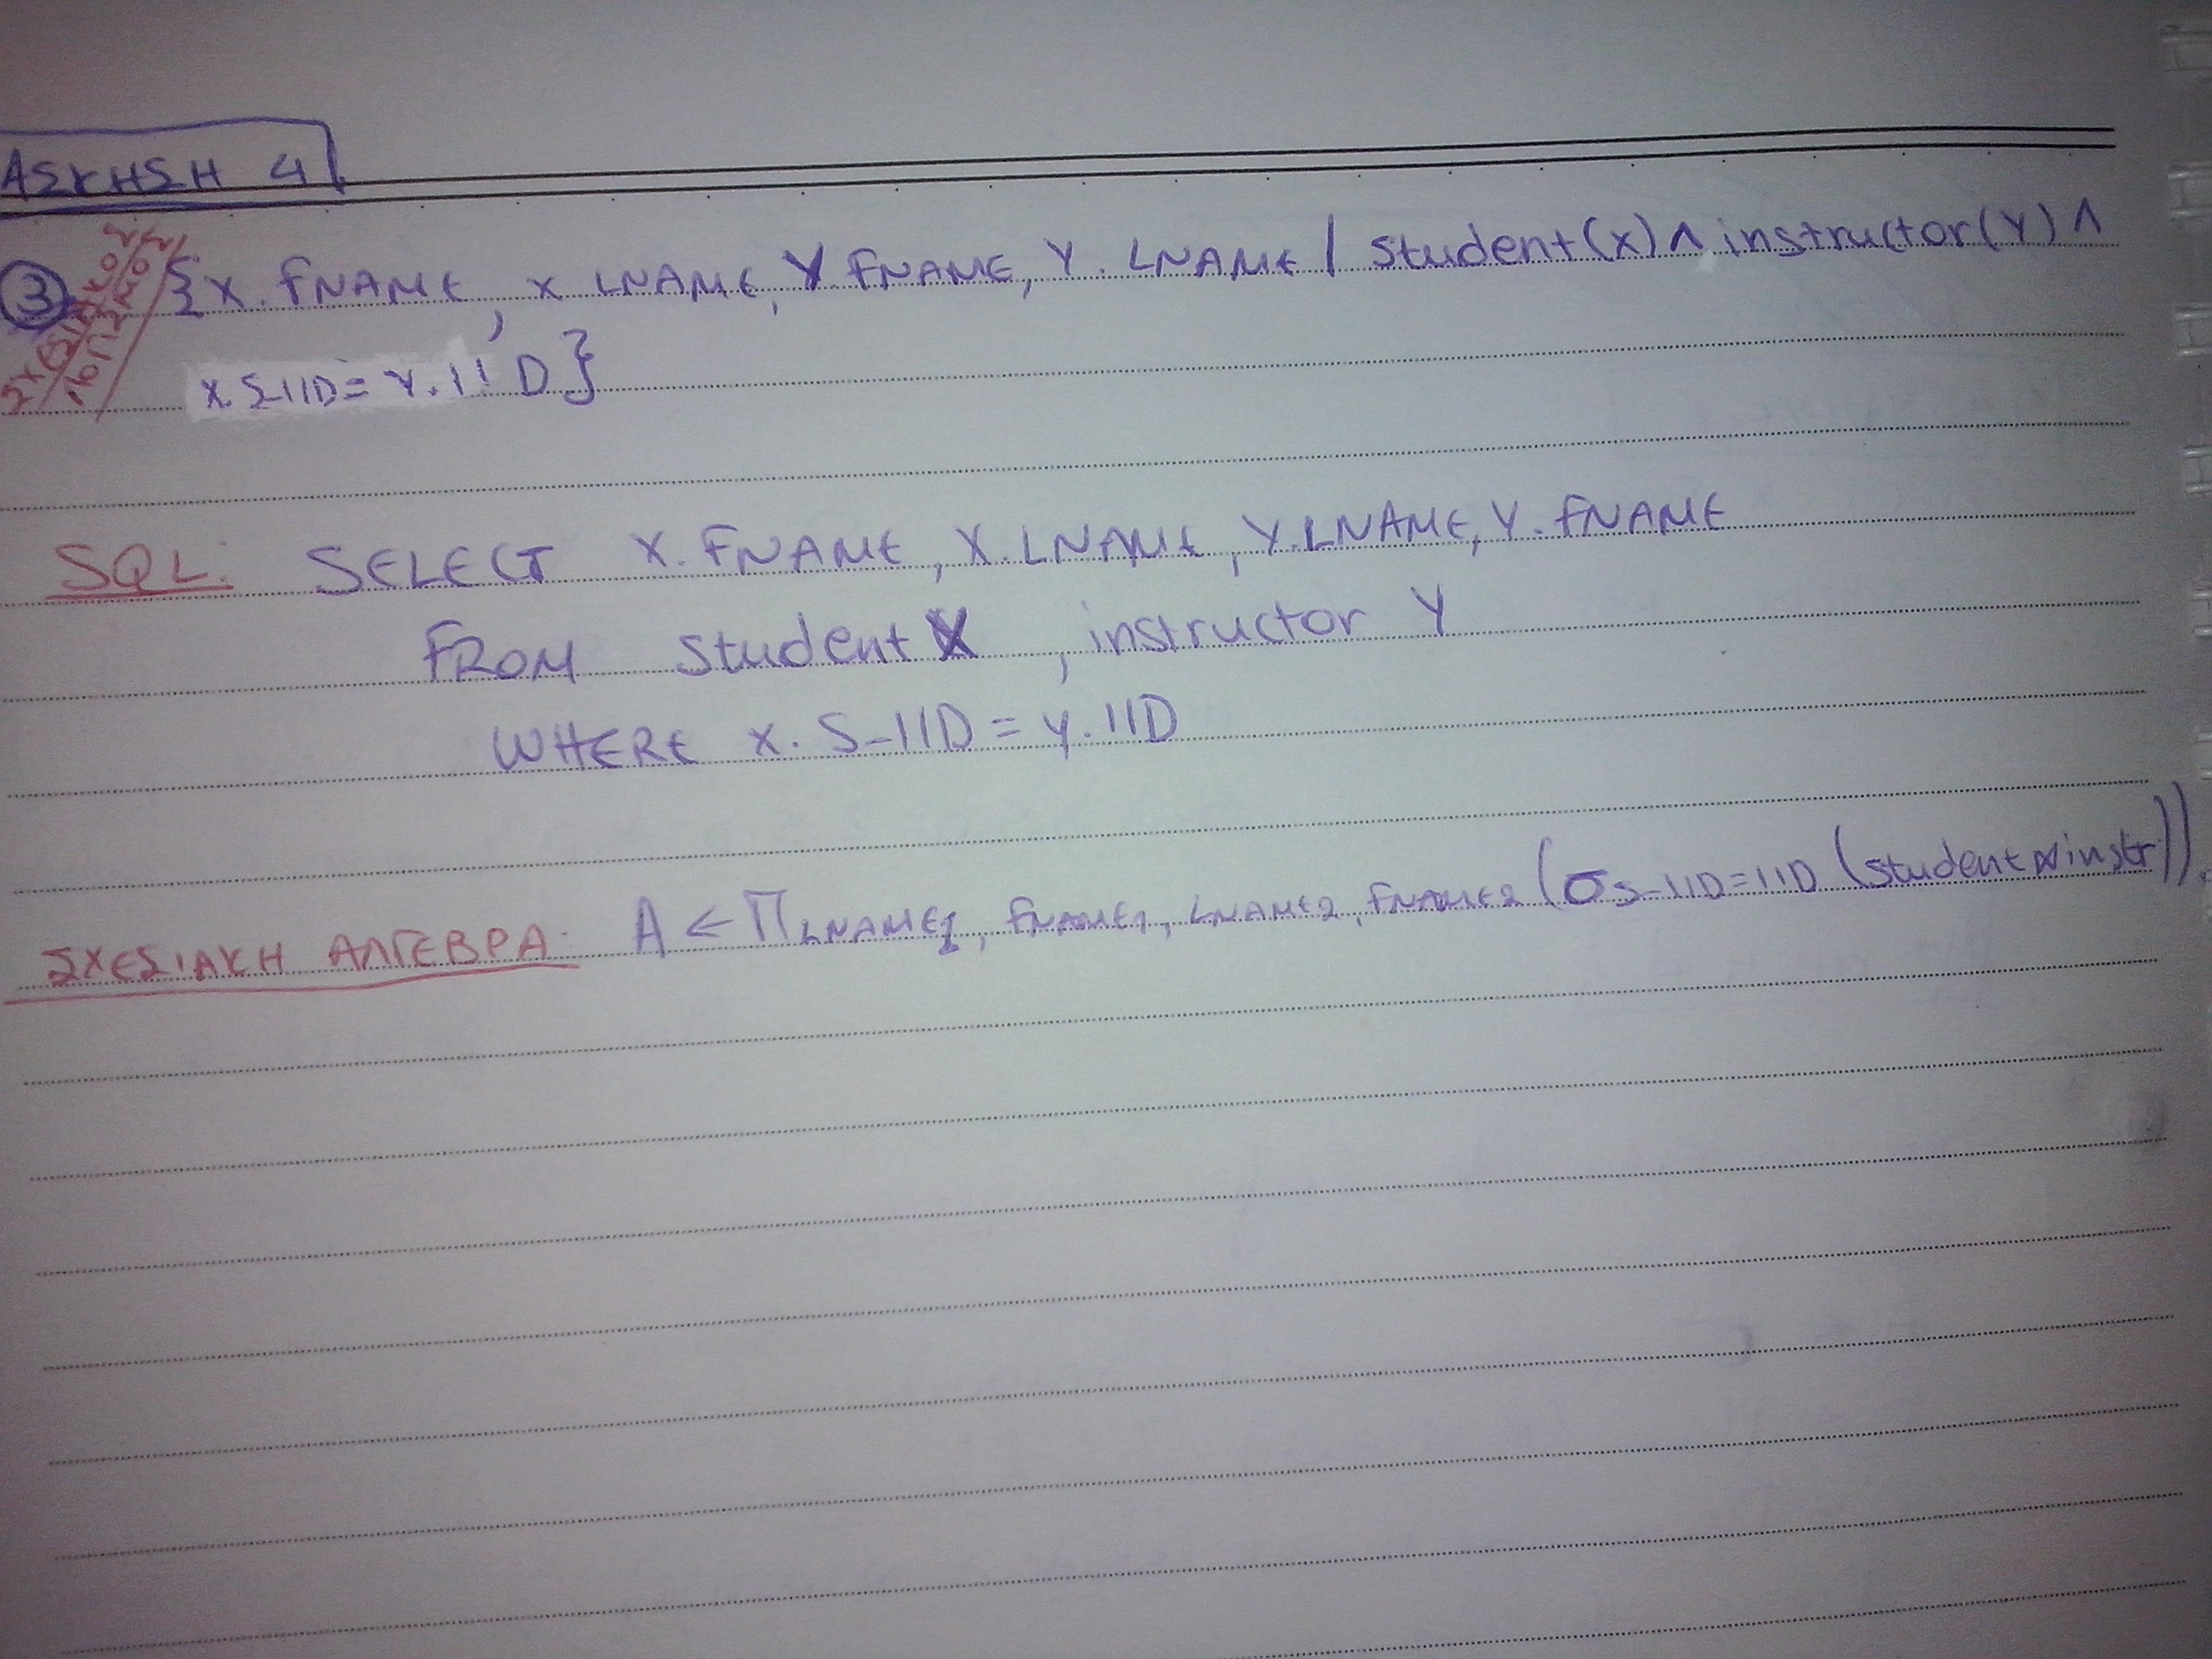 ΑΣΚΗΣΗ 4
③ ΣΧΕΣΙΑΚΟΣ ΛΟΓΙΣΜΟΣ {X.FNAME, X LNAME, Y.FNAME, Y.LNAME / Student(X) ∧ instructor(Y) ∧
X.SIID = Y.IID}
SQL: SELECT X.FNAME, X.LNAME, Y.LNAME, Y.FNAME
FROM Student X, instructor Y
WHERE X.S-IID = Y.IID
ΣΧΕΣΙΑΚΗ ΑΛΓΕΒΡΑ: A ← Π LNAME1, FNAME1, LNAME2, FNAME2 (σ S-IID=IID (Student ⋈ instr)).